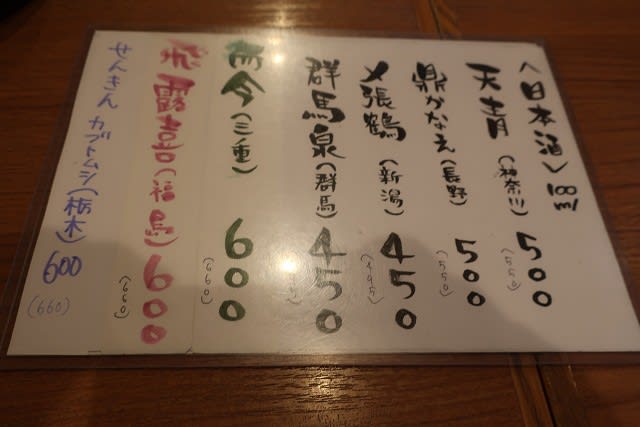 <日本酒> 100ml
天青(神奈川) 500 (550)
鼎かなえ(長野) 500 (550)
〆張鶴(新潟) 450 (495)
群馬泉(群馬) 450
而今(三重) 600 (660)
飛露喜(福島) 600 (660)
せんきん カブトムシ(栃木) 600 (660)